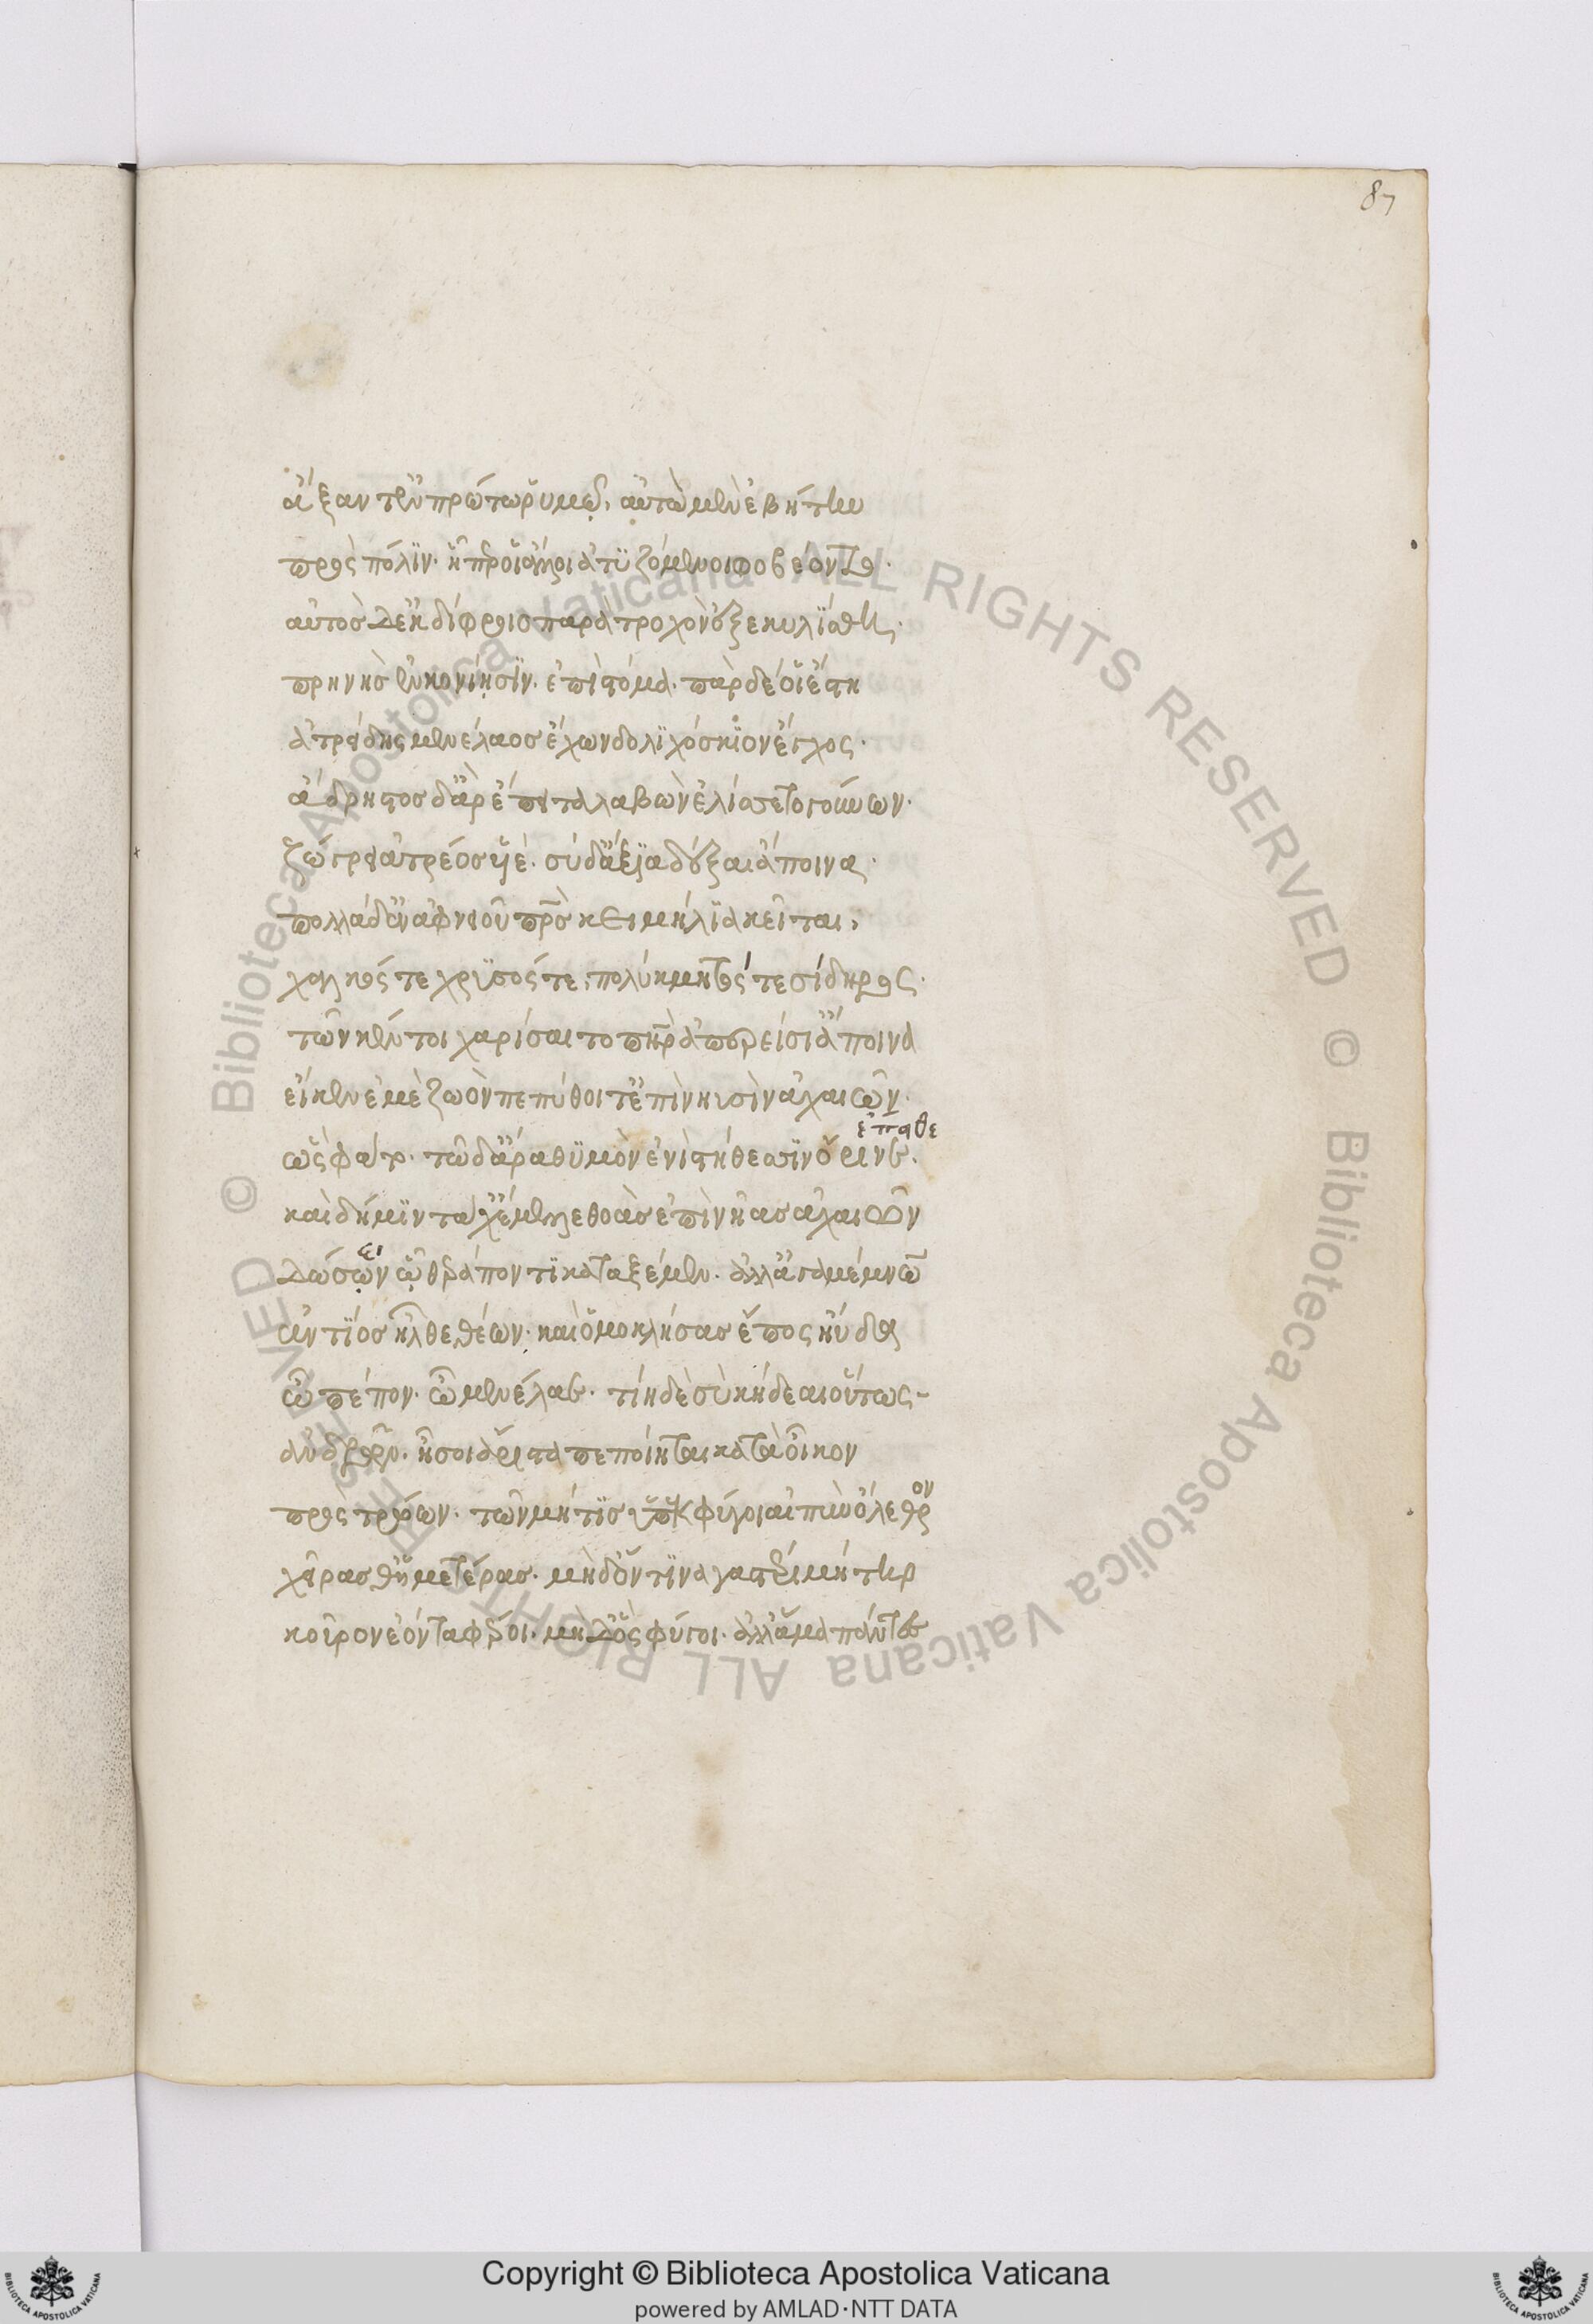 87
ἄξαντ' ἐν πρώτω ῥυμῶ, αὐτὼ μὲν ἐβήτην
πρὸς πόλιν. ᾗπερ οἱ ἄλλοι ἀτυζόμενοι φοβέοντο.
αὐτὸς δ' ἐκ δίφροιο παρὰ τροχὸν ἐξεκυλίσθη.
πρηνὴς ἐν κονίῃσιν. ἐπὶ στόμα. πὰρ δέ οἱ ἔστη
ἀτρείδης μενέλαος ἔχων δολιχόσκιον ἔγχος.
ἄδρηστος δ' ἂρ ἔπειτα λαβὼν ἐλίσσετο γούνων.
ζώγρει ἀτρέος υἱέ. σὺ δ' ἄξια δέξαι ἄποινα.
πολλὰ δ' ἐν ἀφνειοῦ πρὸς κειμήλια κεῖται,
χαλκός τε χρυσός τε, πολύκμητός τε σίδηρος.
τῶν κέν τοι χαρίσαιτο πατὴρ ἀπερείσι' ἄποινα
εἴ κεν ἐμὲ ζωὸν πεπύθοιτ' ἐπὶ νηυσὶν ἀχαιῶν.
ἔπειθε
ὣς φάτο. τῶ δ' ἄρα θυμὸν ἐνὶ στήθεσσιν ὄρινε.
καὶ δή μιν τάχ' ἔμελλε θοὰς ἐπὶ νῆας ἀχαιῶν
ει
δώσων ᾧ θεράποντι καταξέμεν. ἀλλ' ἀγαμέμνων
ἀντίος ἦλθε θέων. καὶ ὁμοκλήσας ἔπος ηὔδα
ὦ πέπον. ὦ μενέλαε. τίη δὲ σὺ κήδεαι οὕτως
ἀνδρῶν. ἦ σοι ἄριστα πεποίηται κατὰ οἶκον
πρὸς τρώων. τῶν μήτις ὑπεκφύγοι αἰπὺν ὄλεθρον
χεῖρας θ' ἡμετέρας. μηδ' ὅντινα γαστέρι μήτηρ
κοῦρον ἐόντα φέροι. μηδ' ὃς φύγοι. ἀλλ' ἅμα πάντες
Copyright © Biblioteca Apostolica Vaticana
powered by AMLAD·NTT DATA
© Biblioteca Apostolica Vaticana ALL RIGHTS RESERVED © Biblioteca Apostolica Vaticana ALL RIGHTS RESERVED